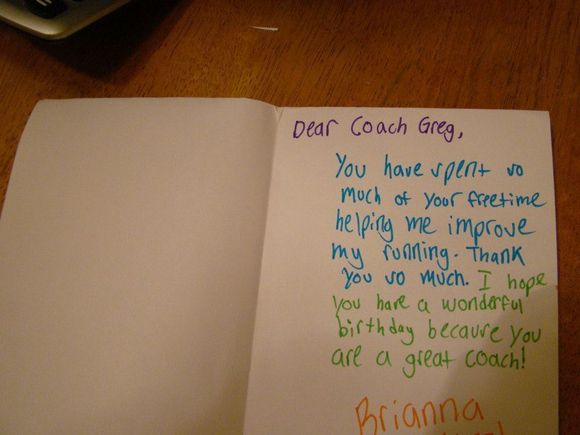 Dear Coach Greg,
You have spent so
much of your freetime
helping me improve
my running. Thank
you so much. I hope
you have a wonderful
birthday because you
are a great coach!
Brianna